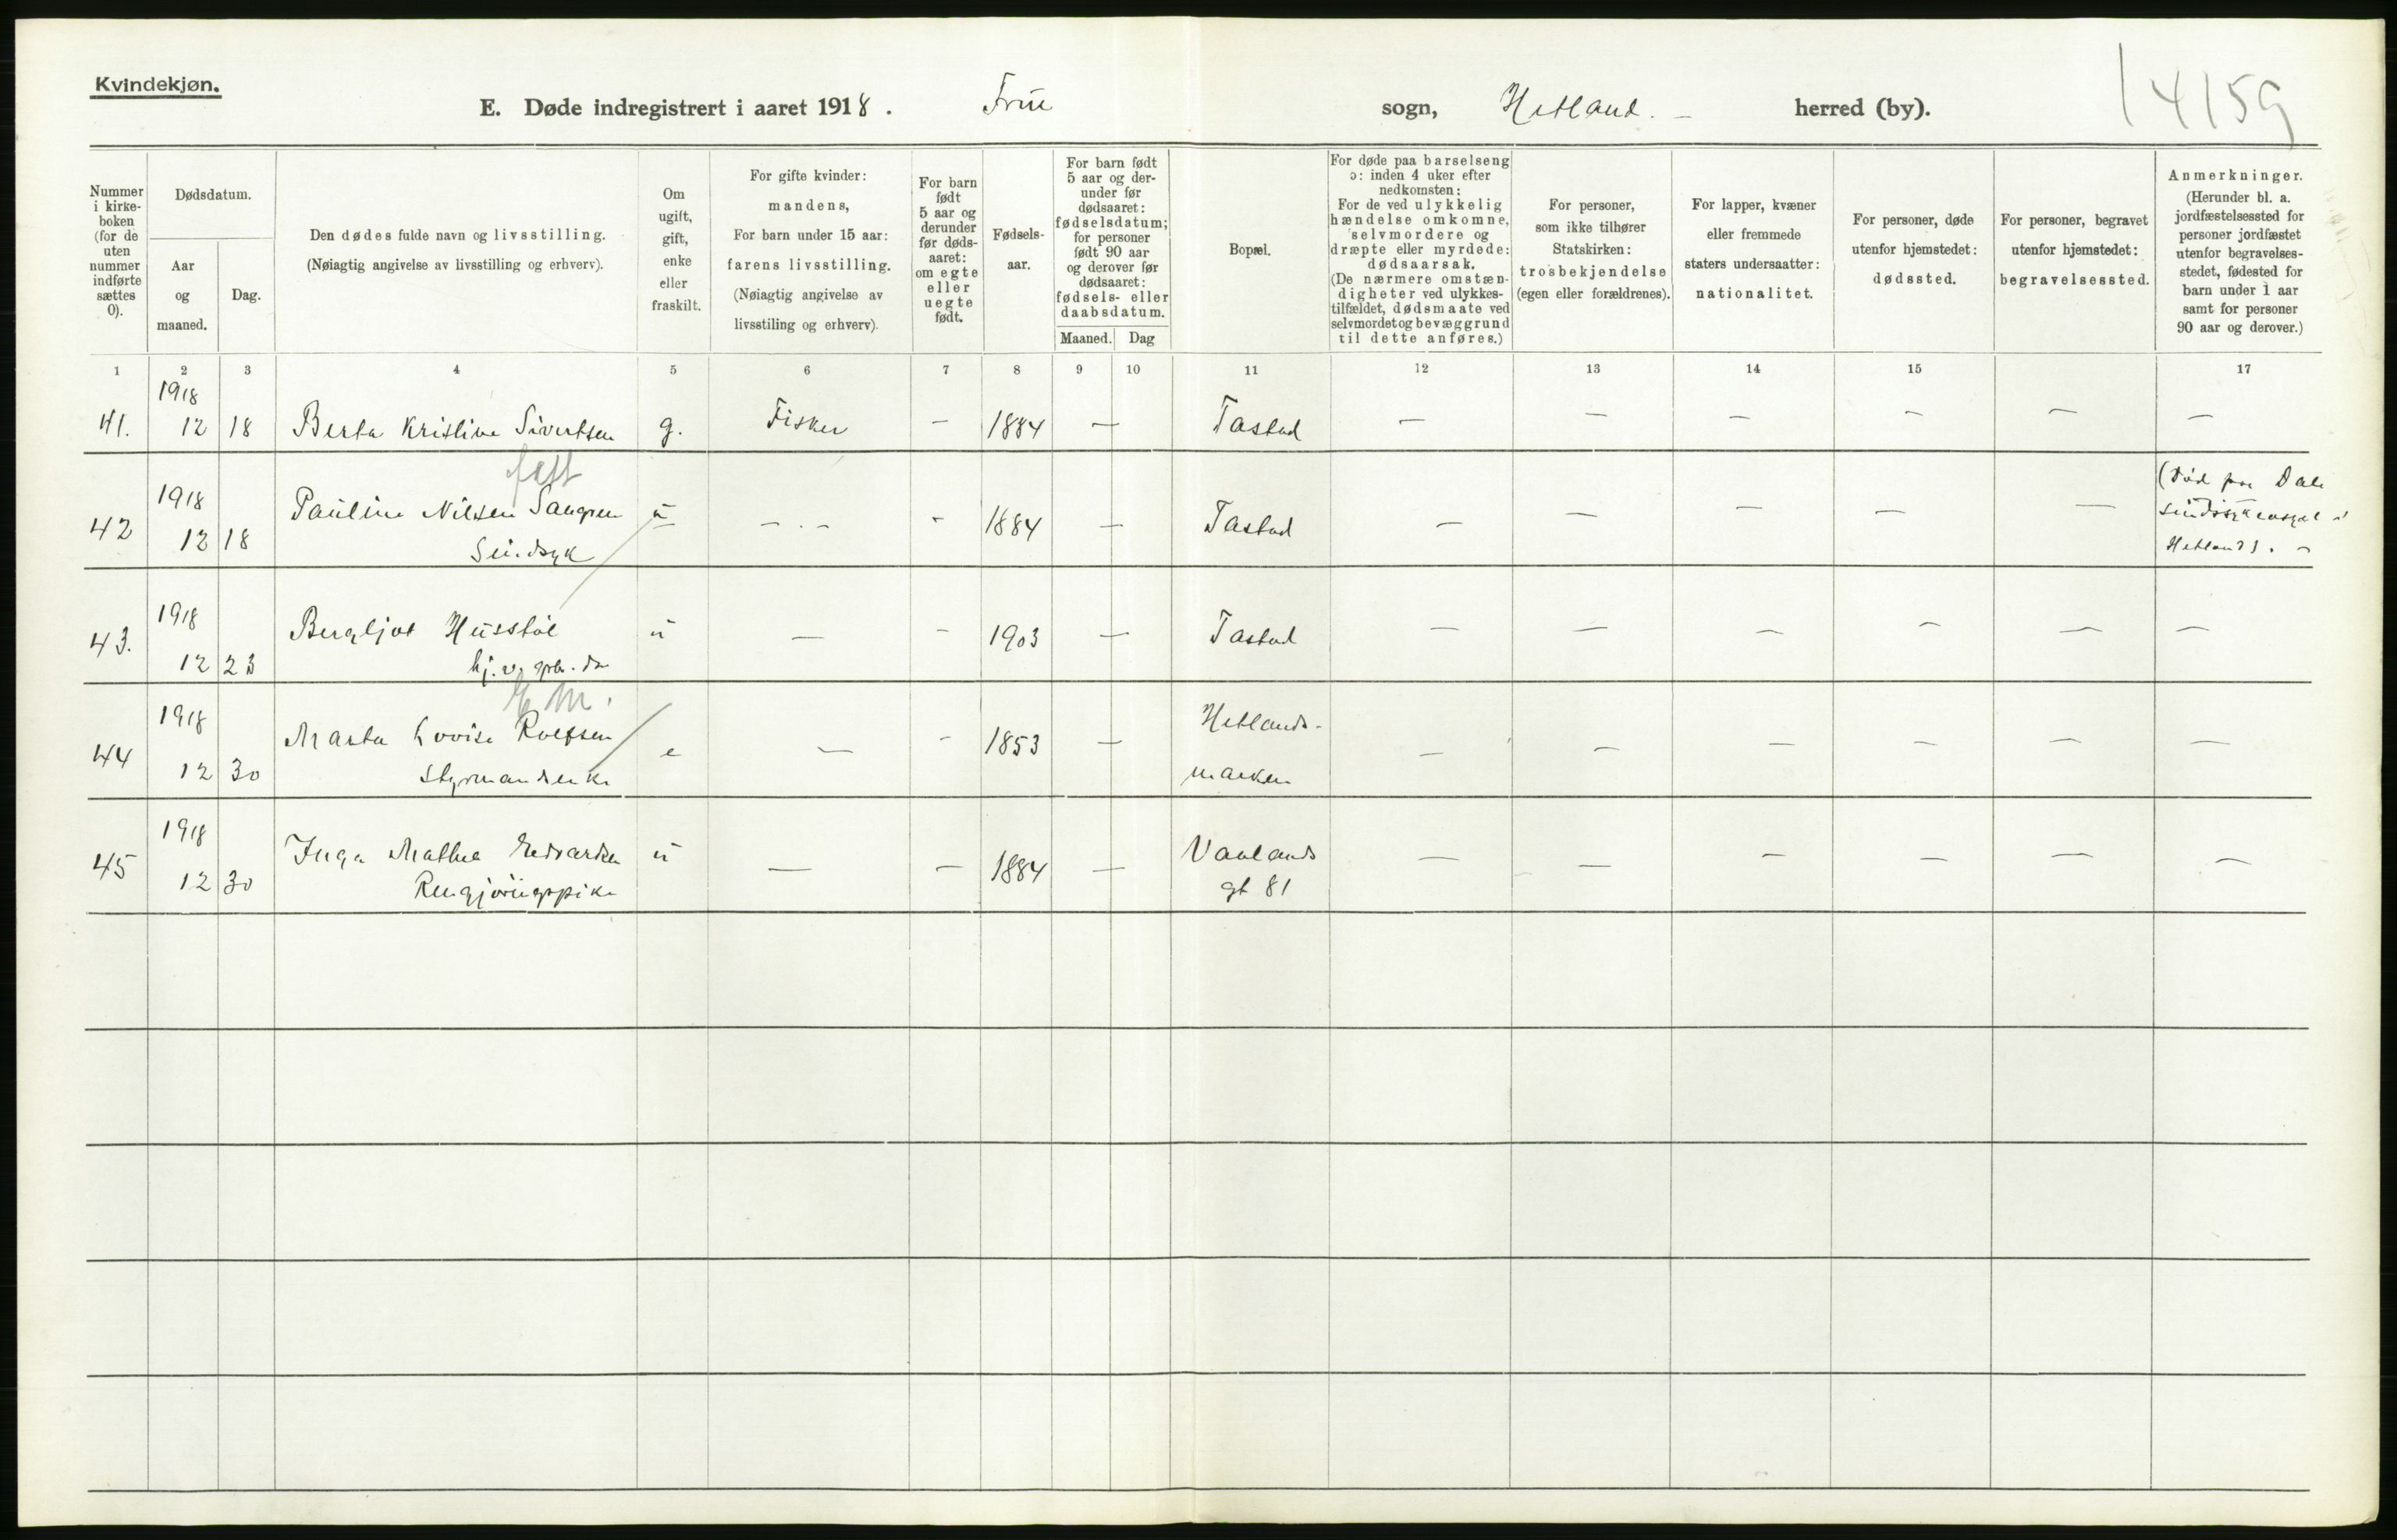 Kvindekjøn.
E. Døde indregistrert i aaret 1918. Frue sogn, Hetland. herred (by). 14159
Nummer i kirke-boken (for de uten nummer indførte sættes 0).
Dødsdatum.
Aar og maaned.
Dag.
Den dødes fulde navn og livsstilling.
(Nøiagtig angivelse av livsstilling og erhverv).
Om ugift, gift, enke eller fraskilt.
For gifte kvinder:
mandens,
For barn under 15 aar:
farens livsstilling.
(Nøiagtig angivelse av
livsstiling og erhverv).
For barn født 5 aar og derunder før døds-aaret: om egte eller uegte født.
Fødsels-aar.
For barn født 5 aar og der-under før dødsaaret: fødselsdatum; for personer født 90 aar og derover før dødsaaret: fødsels- eller daabsdatum.
Maaned. Dag
Bopæl.
For døde paa barselseng
ɔ: inden 4 uker efter
nedkomsten:
For de ved ulykkelig
hændelse omkomne,
selvmordere og
dræpte eller myrdede:
dødsaarsak.
(De nærmere omstæn-
digheter ved ulykkes-
tilfældet, dødsmaate ved
selvmordet og bevæggrund
til dette anføres.)
For personer,
som ikke tilhører
Statskirken:
trosbekjendelse
(egen eller forældrenes).
For lapper, kvæner
eller fremmede
staters undersaatter:
nationalitet.
For personer, døde
utenfor hjemstedet:
dødssted.
For personer, begravet
utenfor hjemstedet:
begravelsessted.
Anmerkninger.
(Herunder bl. a.
jordfæstelsessted for
personer jordfæstet
utenfor begravelses-
stedet, fødested for
barn under 1 aar
samt for personer
90 aar og derover.)
1 2 3 4 5 6 7 8 9 10 11 12 13 14 15 17
1918
41. 12 18 Berta Kristine Sivertsen g. Fisker - 1884 - Tastad - - - - - -
1918
42 12 18 Pauline Nilsen u - . - - 1884 - Tastad - - - - -
Sindsyk
(Død paa Dale
sindssykeasyl i
Hetland). -
1918
43. 12 23 Bergljot Husstøl u - - 1903 - Tastad - - - - - -
1918
44 12 30 Marta Lovise Roefsen e - - 1853 - Hetlands-
marken - - - - - -
Styrmandsenke
1918
45 12 30 Inga Mathea Edvardsen u - - 1884 - Vaalands
gt 81 - - - - - -
Rengjøringspike